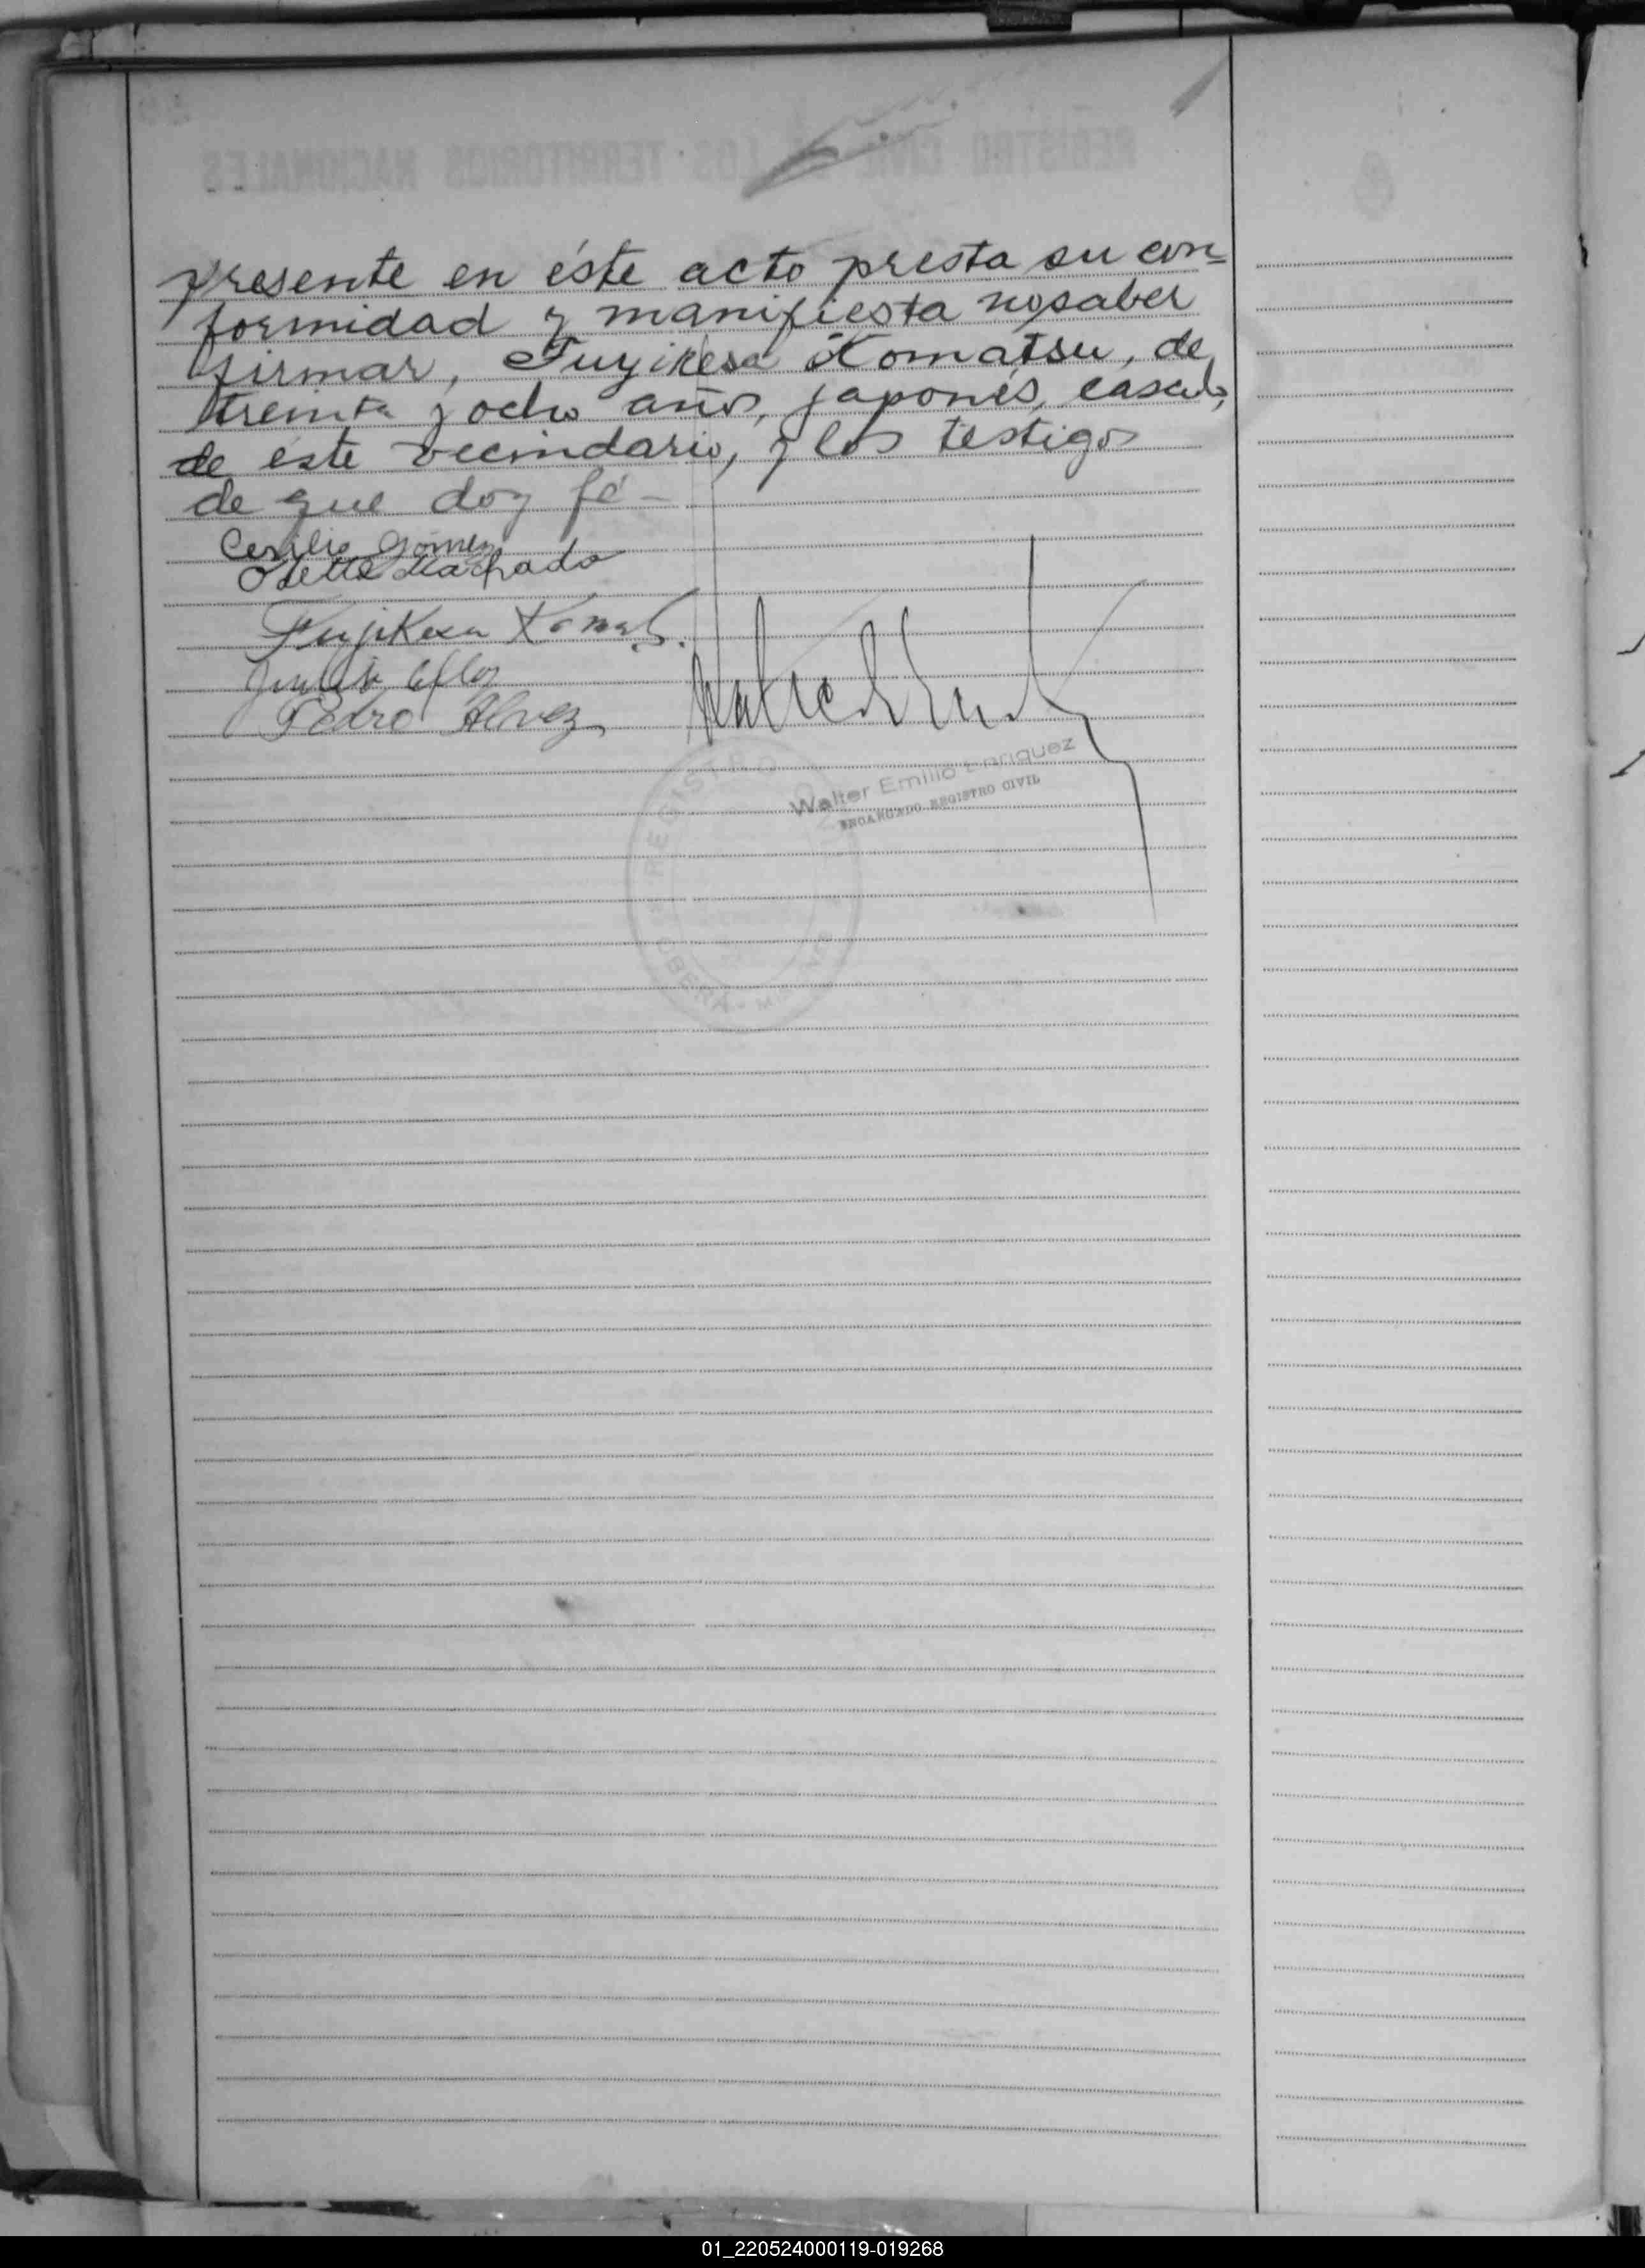 presente en éste acto presta su con=
formidad y manifiesta no saber
firmar, Fuyikesa Komatsu, de
treinta y ocho años, japonés, casado,
de éste vecindario, y los testigos
de que doy fé -
Cesilio Gomez
Odette Machado
Fujikesa
Pedro Alvez
Walter Emilio Enriquez
ENCARGADO REGISTRO CIVIL
REGISTRO
OBERA
01_220524000119-019268